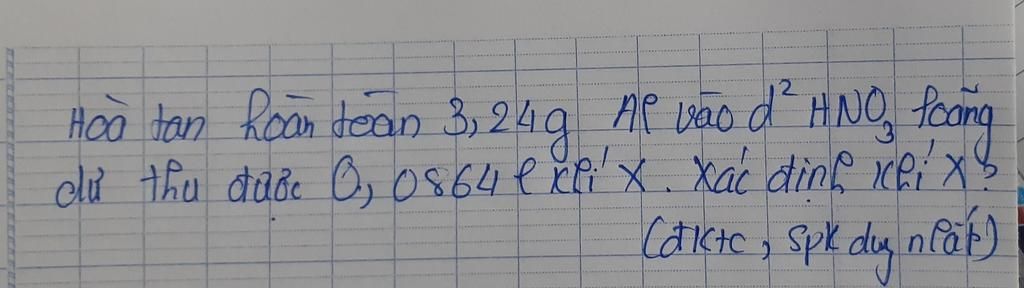 Hoà tan hoàn toàn 3,24g Al vào d² HNO₃ loãng
dư thu được 0,0864 l khí X. Xác định khí X?
(đktc, spk duy nhất)